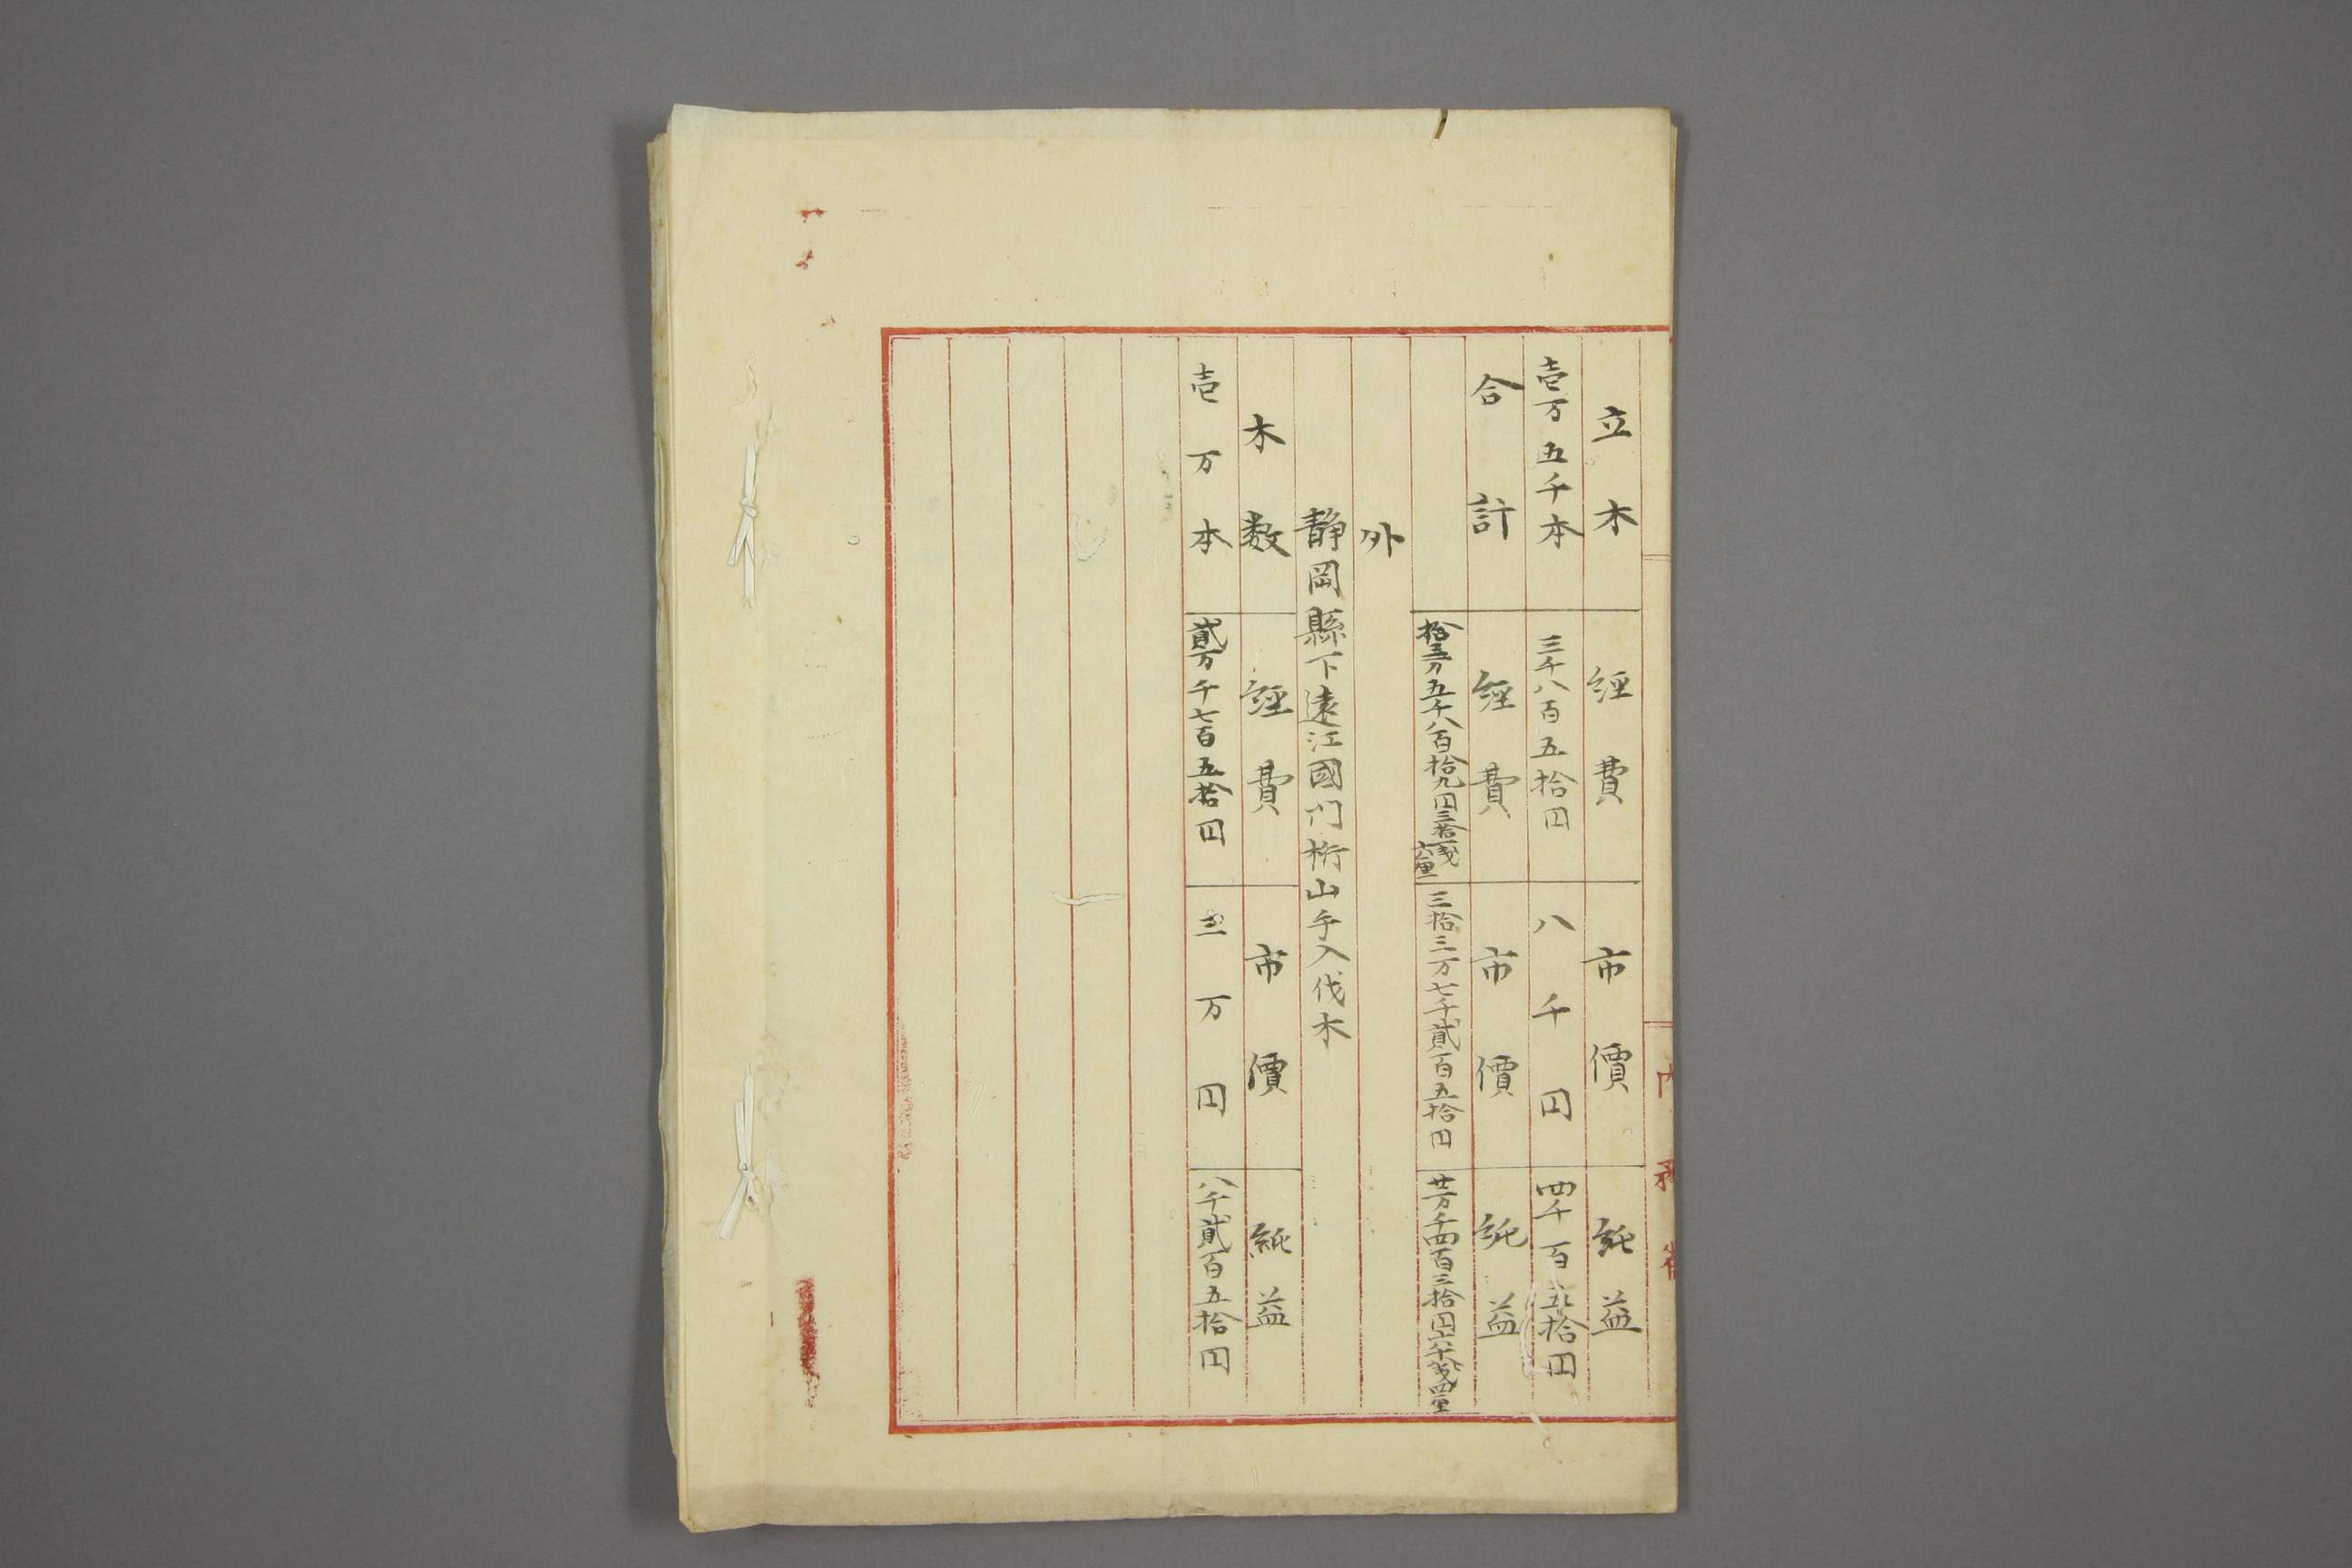 内務省
立木 經費 市價 純益
壱万五千本 三千八百五拾円 八千円 四千百五拾円
合計 經費 市價 純益
拾三万五千八百拾九円三拾一戔六厘 三拾三万七千貳百五拾円 廿万千四百三拾円六十八戔四厘
外
静岡縣下遠江國門桁山手入伐木
木数 經費 市價 純益
壱万本 貳万千七百五拾円 三万円 八千貳百五拾円